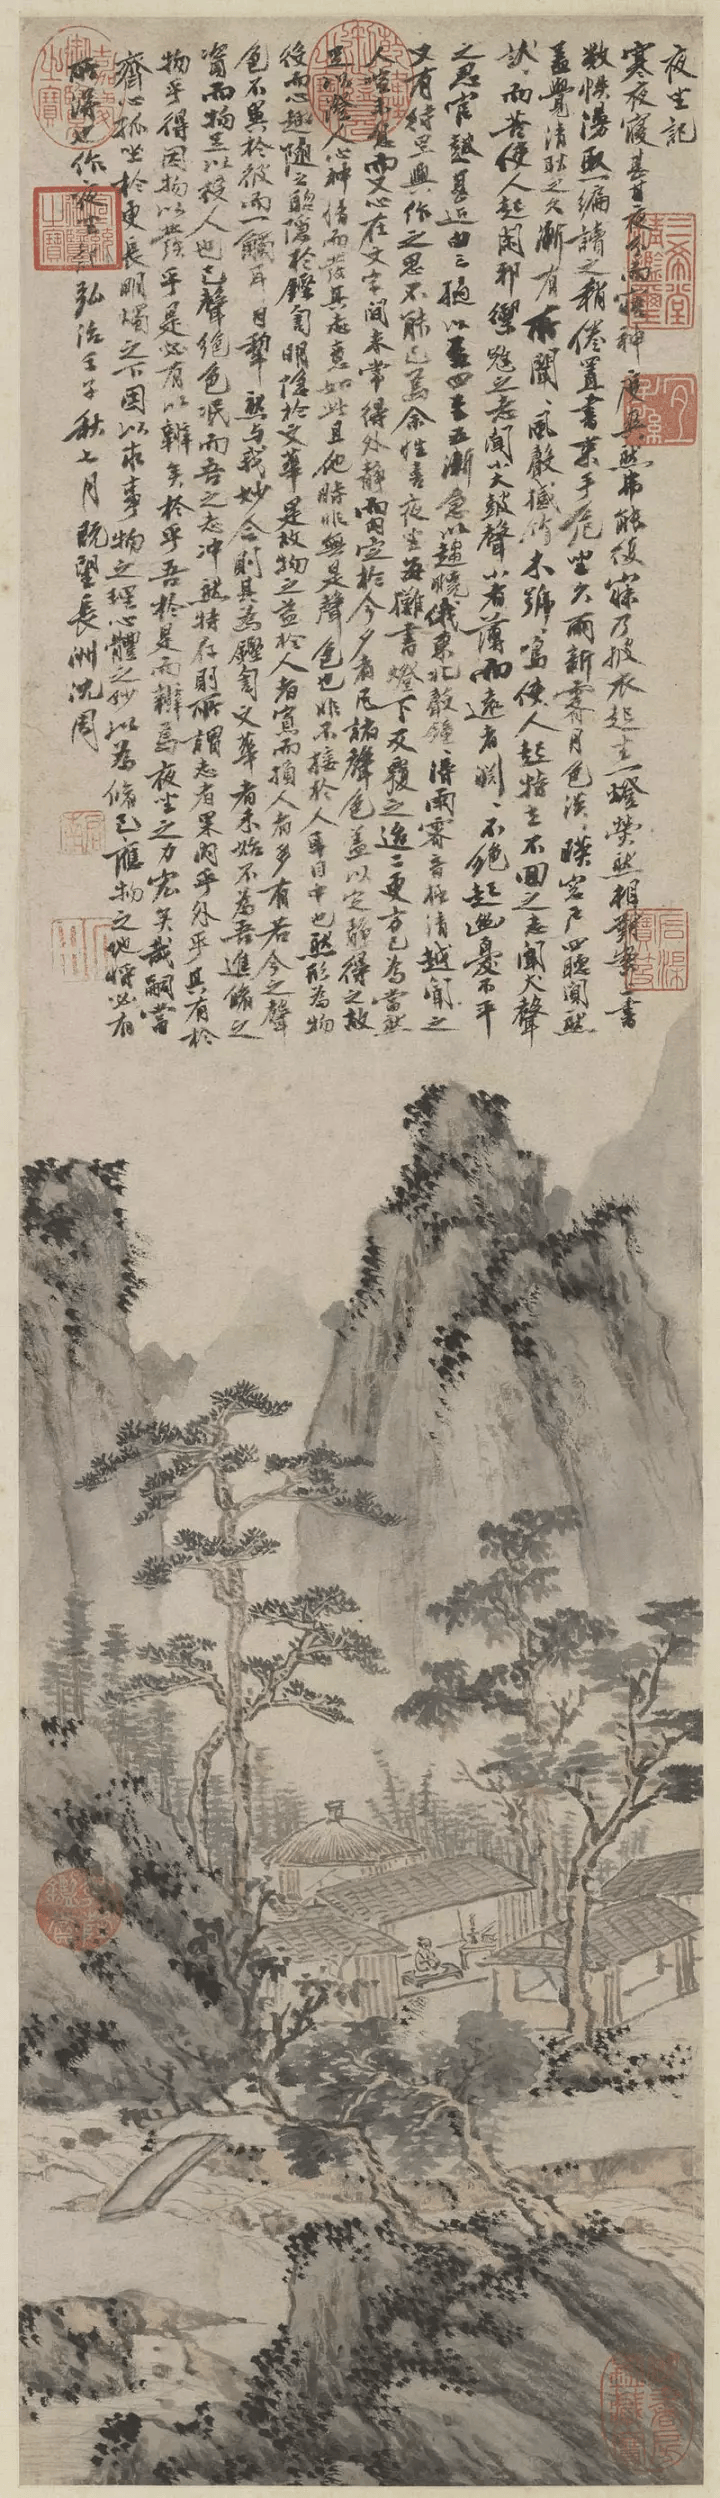 夜坐記
寒夜寢甚甘夜分而寤神度爽然弗能復寐乃披衣起坐一燈熒然相對案上書
數帙漫取一編讀之稍倦置書束手危坐久雨新霽月色淡淡映窗戶四聽闃然
蓋覺清耿之久漸有所聞聞風聲撼竹木號號鳴使人起特立不回之志聞犬聲
狀狀而苦使人起閑邪禦寇之志聞小大鼓聲小者薄而遠者淵淵不絕起幽憂不平
之思官鼓甚近由三撾以至四至五漸急以趨曉俄東北聲鐘鐘得雨霽音極清越聞之
又有待旦興作之思不能已焉余性喜夜坐每攤書燈下反覆之迨二更方已為當然
人喧未息而又心在文字間未常得外靜而內定於今夕者凡諸聲色蓋以定靜得之故
足以澄人心神情而發其志意如此且他時非無是聲色也非不接於人耳目中也然形為物
役而心趣隨之聰隱於鏗訇明隱於文華是故物之益於人者寡而損人者多有若今之聲
色不異於彼而一觸耳目犂然與我妙合則其為鏗訇文華者未始不為吾進脩之
資而物足以役人也已聲絕色泯而吾之志冲然特存則所謂志者果內乎外乎其有於
物乎得因物以發乎是必有以辨矣於乎吾於是而辨焉夜坐之力宏矣哉嗣當
齊心孤坐於更長明燭之下因以求事物之理心體之妙以為脩己應物之地將必有
所得也作夜坐記弘治壬子秋七月既望長洲沈周
三希堂精鑑璽
宜子孫
石渠寶笈
嘉慶御覽之寶